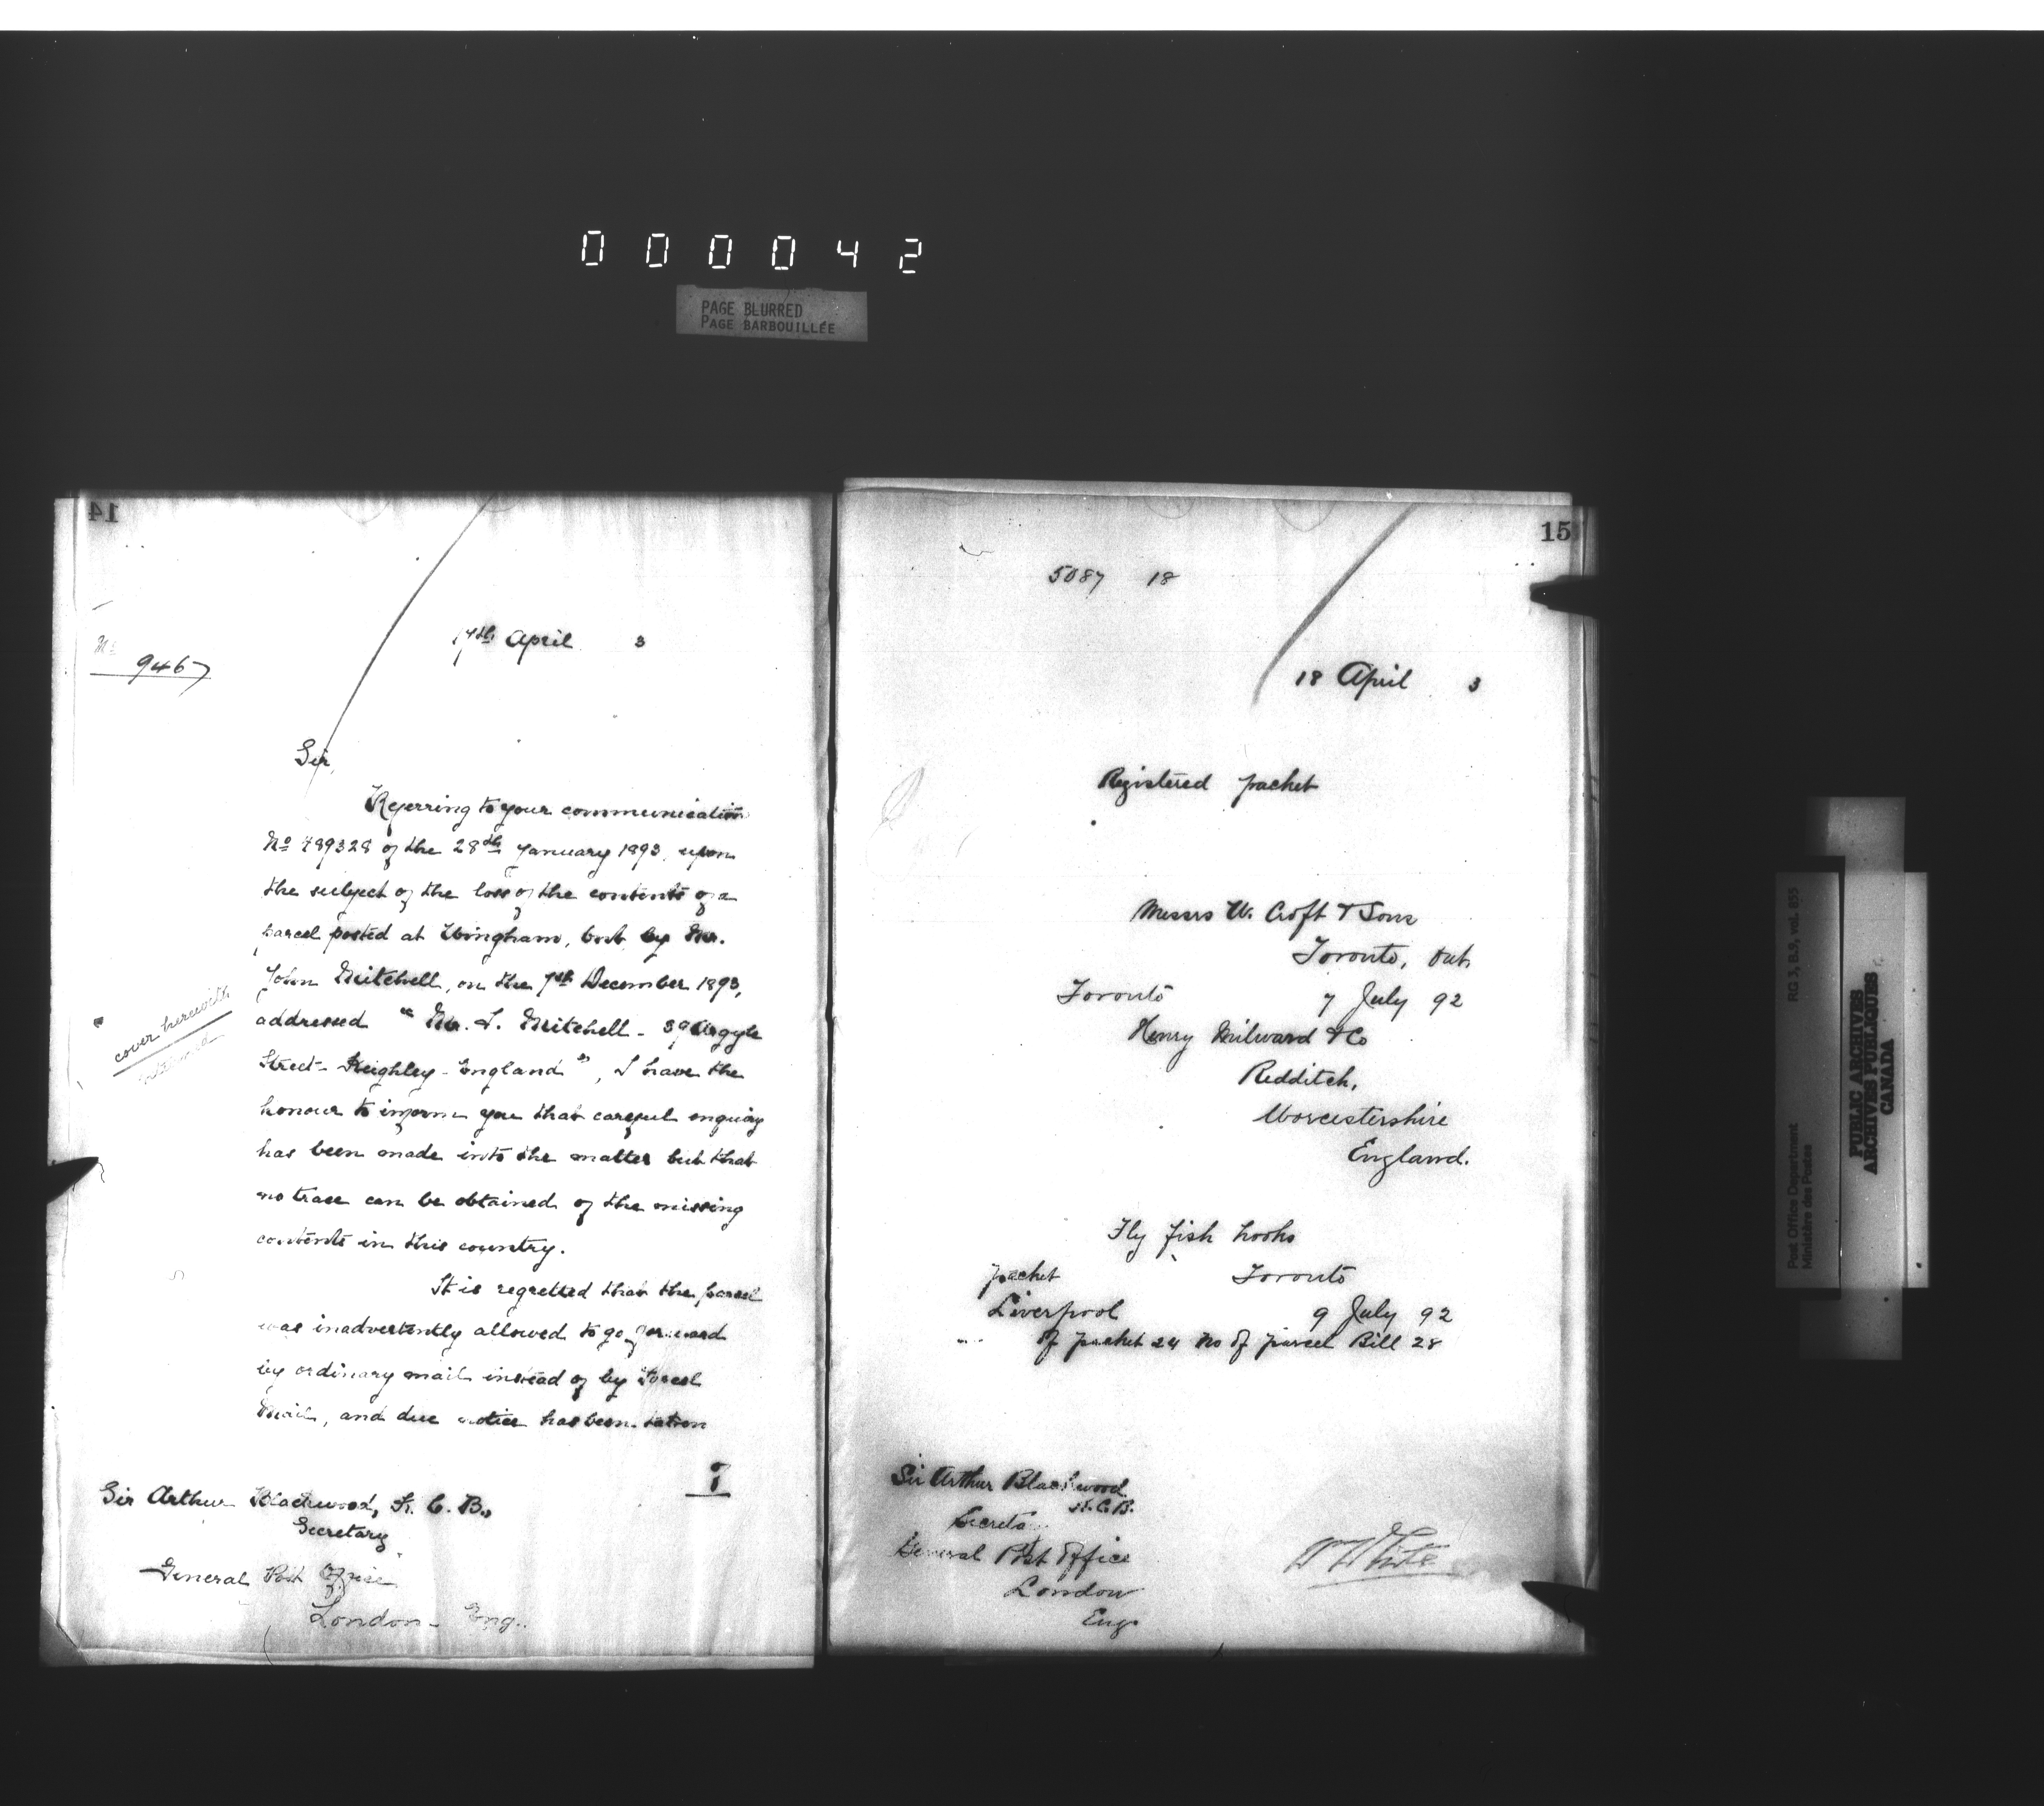 000042
PAGE BLURRED
PAGE BARBOUILLÉE
14
No
9467
17th April 3
Sir,
Referring to your communication
No 489328 of the 28th January 1893, upon
the subject of the loss of the contents of a
parcel posted at Wingham, Ont. by Mr.
John Mitchell, on the 7th December 1893,
addressed "Mr. L. Mitchell - 39 Argyle
Street - Keighley - England", I have the
honour to inform you that careful enquiry
has been made into the matter but that
no trace can be obtained of the missing
contents in this country.
It is regretted that the parcel
was inadvertently allowed to go forward
by ordinary mail instead of by Parcel
Mail, and due notice has been taken
cover herewith
returned
Sir Arthur Blackwood, K. C. B.,
Secretary
General Post Office
London - Eng.
15
5087 18
18 April 3
Registered packet
Messrs W. Croft & Sons
Toronto, Ont.
Toronto 7 July 92
Henry Milward & Co
Redditch,
Worcestershire
England.
Fly fish hooks
packet Toronto
Liverpool 9 July 92
of packet 24 No of parcel Bill 28
Sir Arthur Blackwood
K.C.B.
Secreta
General Post Office
London
Eng
W White
RG 3, B.9, vol. 855
Post Office Department
Ministère des Postes
PUBLIC ARCHIVES
ARCHIVES PUBLIQUES
CANADA